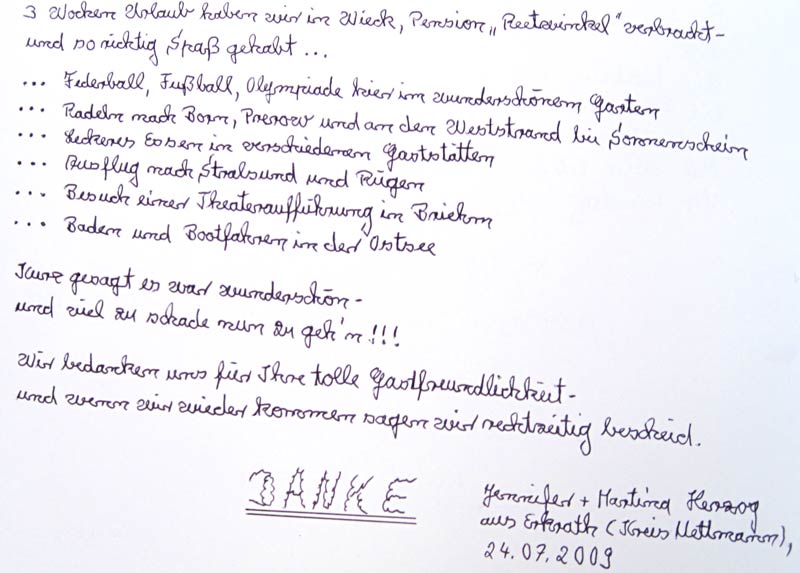 3 Wochen Urlaub haben wir in Wieck, Pension „Reetwinkel" verbracht-
und so richtig Spaß gehabt ...
... Federball, Fußball, Olympiade hier im wunderschönem Garten
... Radeln nach Born, Prerow und an den Weststrand bei Sonnenschein
... leckeres Essen in verschiedenen Gaststätten
... Ausflug nach Stralsund und Rügen
... Besuch einer Theateraufführung in
... Baden und Bootfahren in der Ostsee
Kurz gesagt es war wunderschön-
und viel zu schade nun zu geh'n!!!
Wir bedanken uns für Ihre tolle Gastfreundlichkeit-
und wenn wir wieder kommen sagen wir rechtzeitig bescheid.
DANKE
Jennifer + Martina Herzog
aus Erkrath (Kreis Mettmann),
24.07.2009